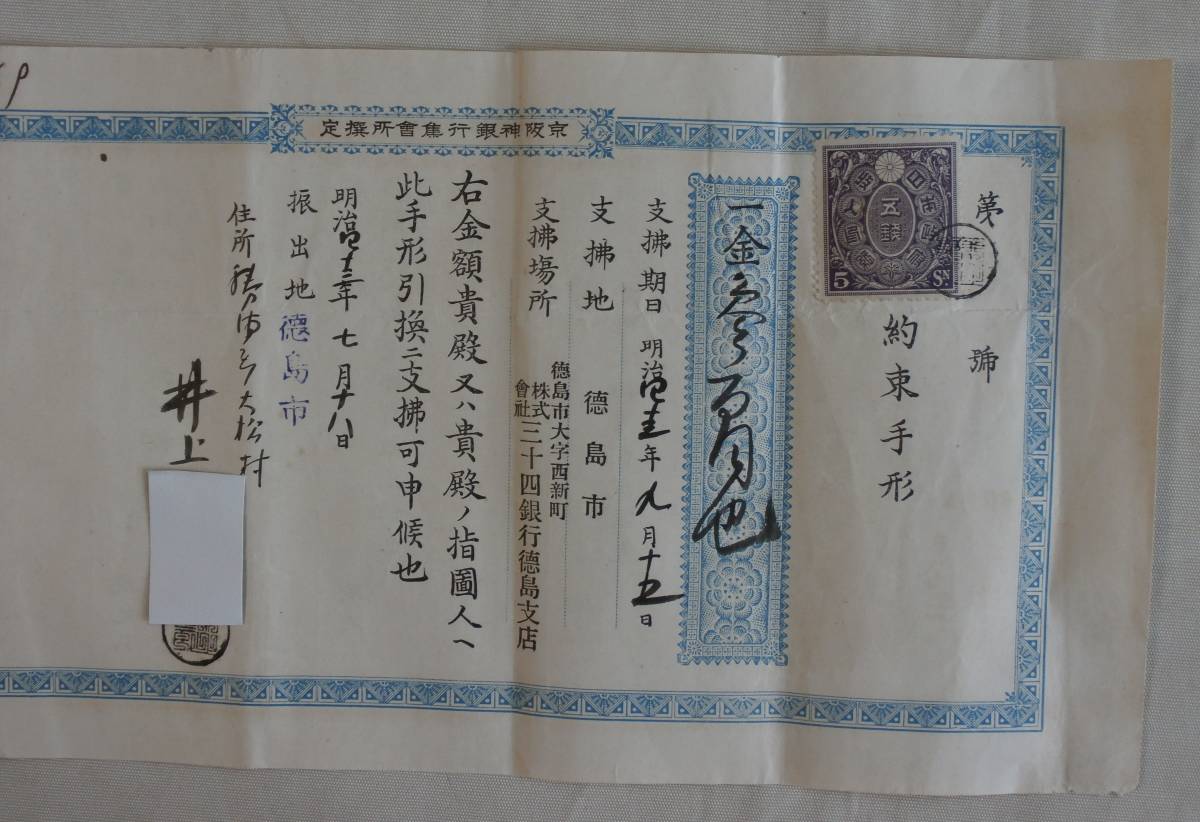 京阪神銀行集會所撰定
第
號
約束手形
大日本帝國政府
五錢
5 SN.
一金參百円也
支拂期日 明治四十三年九月十五日
支拂地 德島市
支拂塲所
德島市大字西新町
株式會社三十四銀行德島支店
右金額貴殿又ハ貴殿ノ指圖人ヘ
此手形引換ニ支拂可申候也
明治四十三年七月十八日
振出地 德島市
住所
大松村
井上